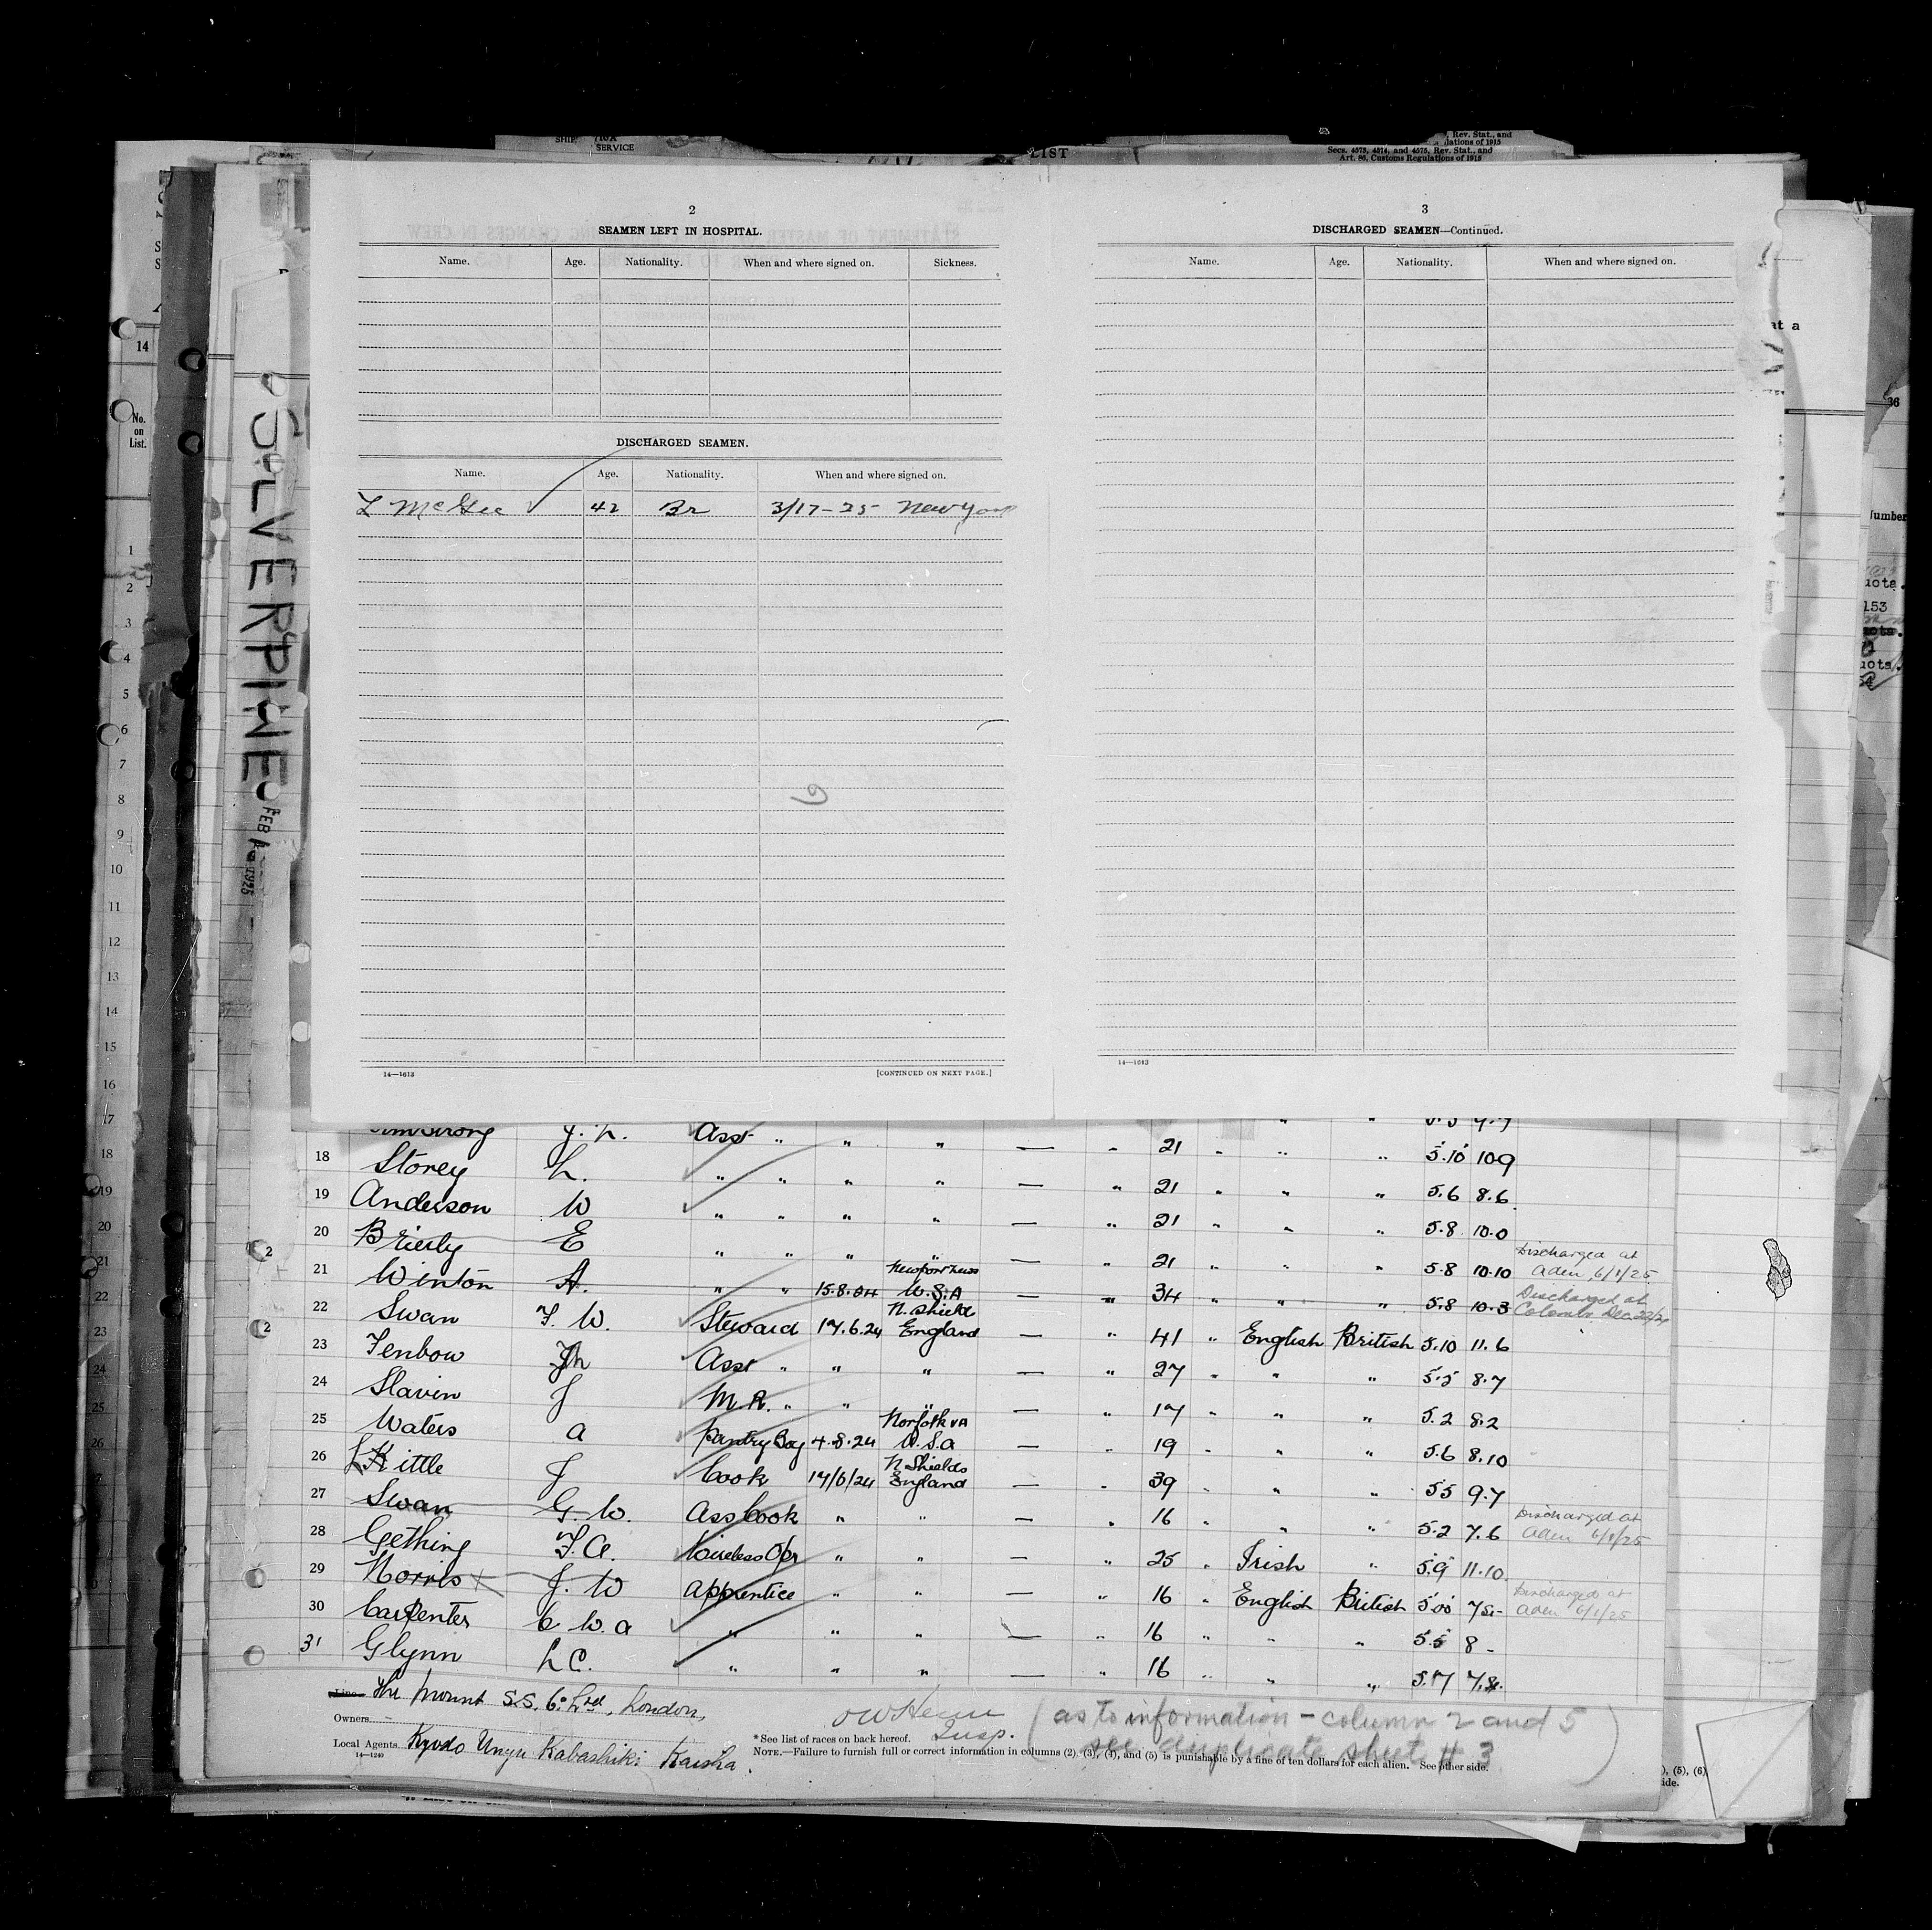 SERVICE
LIST
Rev. Stat., and
Secs. 4573, 4574, and 4575, Rev. Stat., and
Art. 86, Customs Regulations of 1915
2
SEAMEN LEFT IN HOSPITAL.
Name. Age. Nationality. When and where signed on. Sickness.
DISCHARGED SEAMEN.
Name. Age. Nationality. When and where signed on.
McGee 42 Br 3/17-25 New York
14—1613 [CONTINUED ON NEXT PAGE.]
3
DISCHARGED SEAMEN—Continued.
Name. Age. Nationality. When and where signed on.
14—1613
SILVERPINE
FEB 1925
14
No.
on
List.
1
2
3
4
5
6
7
8
9
10
11
12
13
14
15
16
17
18
19
20
21
22
23
24
25
26
at a
36
umber
153
Asst " " " — " 21 " " " 5.10 10.9
18 Storey L. " " " " — " 21 " " " 5.6 8.6
19 Anderson W " " " " — " 21 " " " 5.8 10.0
20 Brierly E " " " " — " 21 " " " 5.8 10.10 Discharged at Aden 6/1/25
21 Winton A. " " 15.8.24 Newport News U.S.A — " 34 " " " 5.8 10.3 Discharged at Colombo Dec
22 Swan F. W. Steward 17.6.24 N. Shields England — " 41 " English British 5.10 11.6
23 Fenbow Asst " " " — " 27 " " " 5.5 8.7
24 Slavin J M.R. " " " — " 17 " " " 5.2 8.2
25 Waters A Pantry Boy 4.8.24 Norfolk VA U.S.A — " 19 " " " 5.6 8.10
26 Kittle J Cook 17/6/24 N Shields England — " 39 " " " 5.5 9.7
27 Swan G. W. Ass Cook " " — " 16 " " " 5.2 7.6 Discharged at Aden 6/1/25
28 Gething F. A. Wireless Opr " " — " 25 " Irish " 5.9 11.10
29 Norris J. W Apprentice " " — " 16 " English British 5.00 7.5 Discharged at Aden 6/1/25
30 Carpenter C. W. A " " " — " 16 " " " 5.5 8 -
31 Glynn L C. " " " — " 16 " " " 5.7 7.8
Line The Mount S.S. Co. Ltd, London,
Owners
Local Agents Kyodo Unyu Kabashiki Kaisha.
14—1240
Insp.
(as to information - column 2 and 5
see duplicate sheet # 3)
* See list of races on back hereof.
NOTE.—Failure to furnish full or correct information in columns (2), (3), (4), and (5) is punishable by a fine of ten dollars for each alien. See other side.
), (5), (6)
ide.